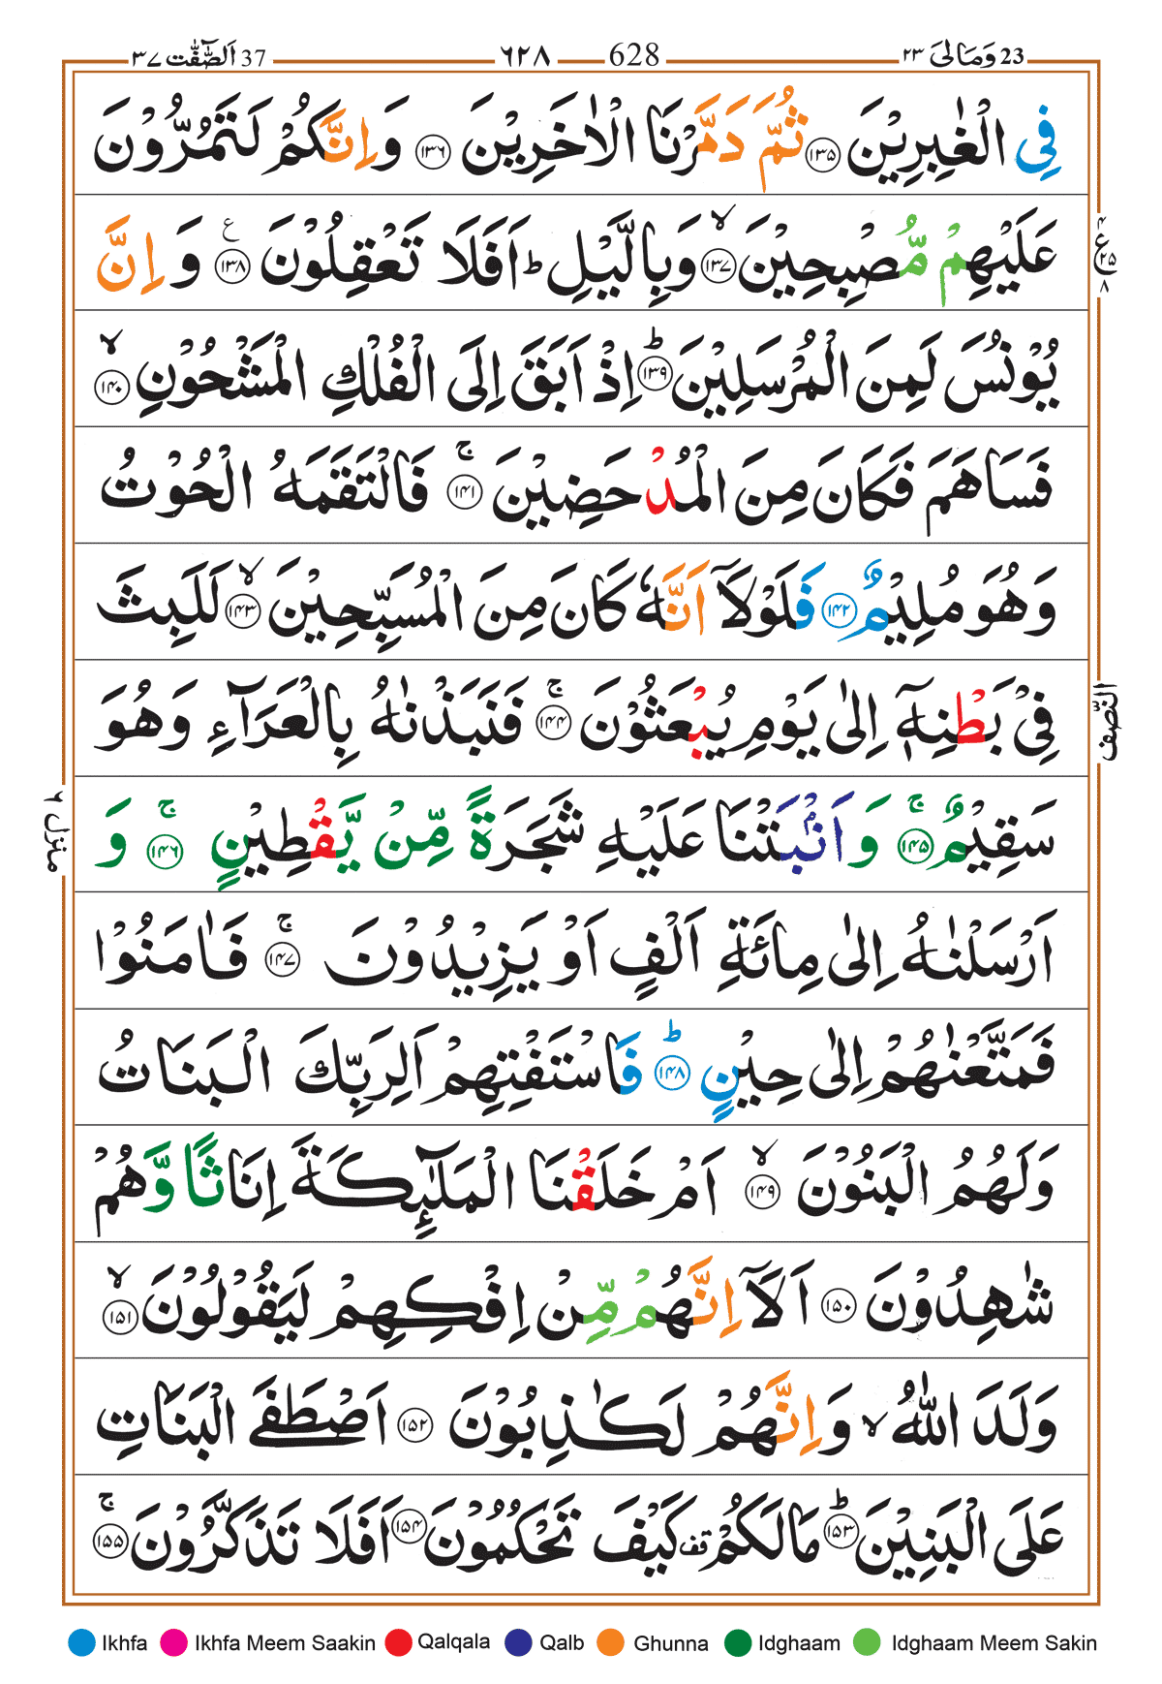 37 اَلصّٰٓفّٰت ٣٧
٦٢٨ — 628
23 وَمَالِیَ ٢٣
فِی الْغٰبِرِیْنَ ۝١٣٥ ثُمَّ دَمَّرْنَا الْاٰخَرِیْنَ ۝١٣٦ وَ اِنَّكُمْ لَتَمُرُّوْنَ
عَلَیْهِمْ مُّصْبِحِیْنَ ۙ۝١٣٧ وَبِالَّیْلِ ؕ اَفَلَا تَعْقِلُوْنَ ۝١٣٨ ع وَ اِنَّ
یُوْنُسَ لَمِنَ الْمُرْسَلِیْنَ ؕ۝١٣٩ اِذْ اَبَقَ اِلَی الْفُلْكِ الْمَشْحُوْنِ ۙ۝١٤٠
فَسَاهَمَ فَكَانَ مِنَ الْمُدْحَضِیْنَ ۚ۝١٤١ فَالْتَقَمَهُ الْحُوْتُ
وَهُوَ مُلِیْمٌ ۝١٤٢ فَلَوْلَاۤ اَنَّهٗ كَانَ مِنَ الْمُسَبِّحِیْنَ ۙ۝١٤٣ لَلَبِثَ
فِیْ بَطْنِهٖۤ اِلٰی یَوْمِ یُبْعَثُوْنَ ۚ۝١٤٤ فَنَبَذْنٰهُ بِالْعَرَآءِ وَهُوَ
سَقِیْمٌ ۚ۝١٤٥ وَاَنْۢبَتْنَا عَلَیْهِ شَجَرَةً مِّنْ یَّقْطِیْنٍ ۚ۝١٤٦ وَ
اَرْسَلْنٰهُ اِلٰی مِائَةِ اَلْفٍ اَوْ یَزِیْدُوْنَ ۚ۝١٤٧ فَاٰمَنُوْا
فَمَتَّعْنٰهُمْ اِلٰی حِیْنٍ ؕ۝١٤٨ فَاسْتَفْتِهِمْ اَلِرَبِّكَ الْبَنَاتُ
وَلَهُمُ الْبَنُوْنَ ۙ۝١٤٩ اَمْ خَلَقْنَا الْمَلٰٓئِكَةَ اِنَاثًا وَّهُمْ
شٰهِدُوْنَ ۝١٥٠ اَلَاۤ اِنَّهُمْ مِّنْ اِفْكِهِمْ لَیَقُوْلُوْنَ ۙ۝١٥١
وَلَدَ اللّٰهُ ۙ وَاِنَّهُمْ لَكٰذِبُوْنَ ۝١٥٢ اَصْطَفَی الْبَنَاتِ
عَلَی الْبَنِیْنَ ؕ۝١٥٣ مَالَكُمْ قف كَیْفَ تَحْكُمُوْنَ ۝١٥٤ اَفَلَا تَذَكَّرُوْنَ ۚ۝١٥٥
٤ ع ٢٥ ٨
النّصف
منزل ٦
Ikhfa Ikhfa Meem Saakin Qalqala Qalb Ghunna Idghaam Idghaam Meem Sakin